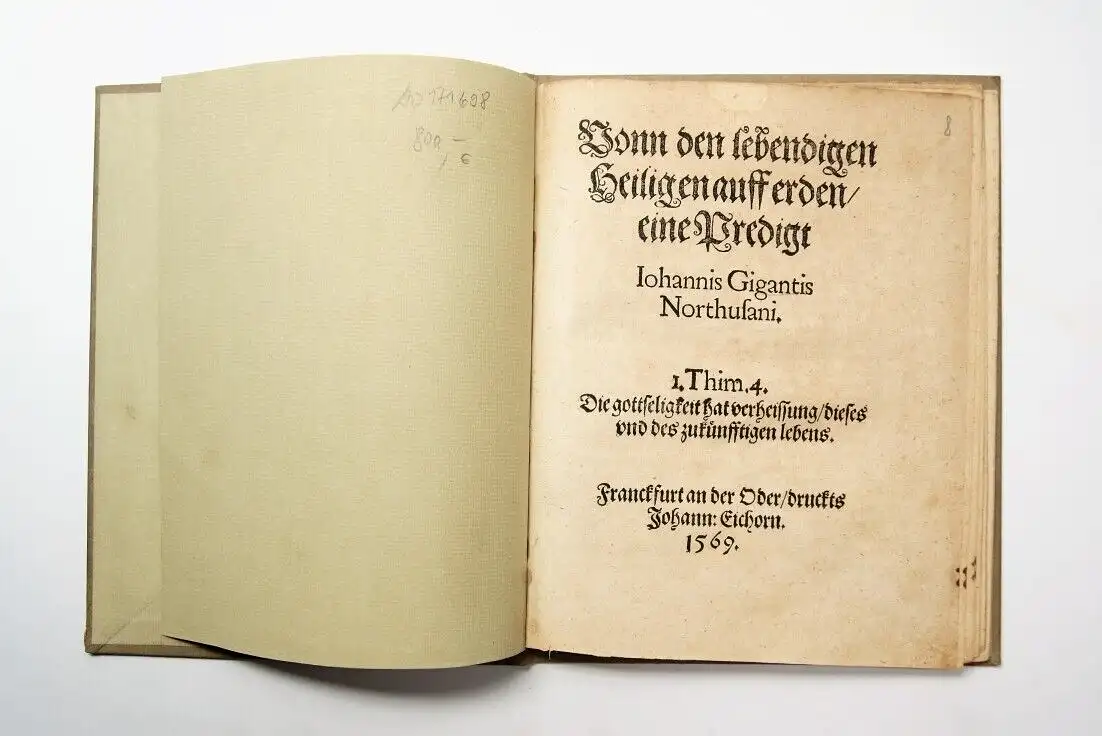 AD 171608
800 —
€
8
Vonn den lebendigen
Heiligen auff erden/
eine Predigt
Iohannis Gigantis
Northuſani.
1. Thim. 4.
Die gottſeligkeit hat verheiſſung/dieſes
vnd des zukuͤnfftigen lebens.
Franckfurt an der Oder/druckts
Johann: Eichorn.
1569.